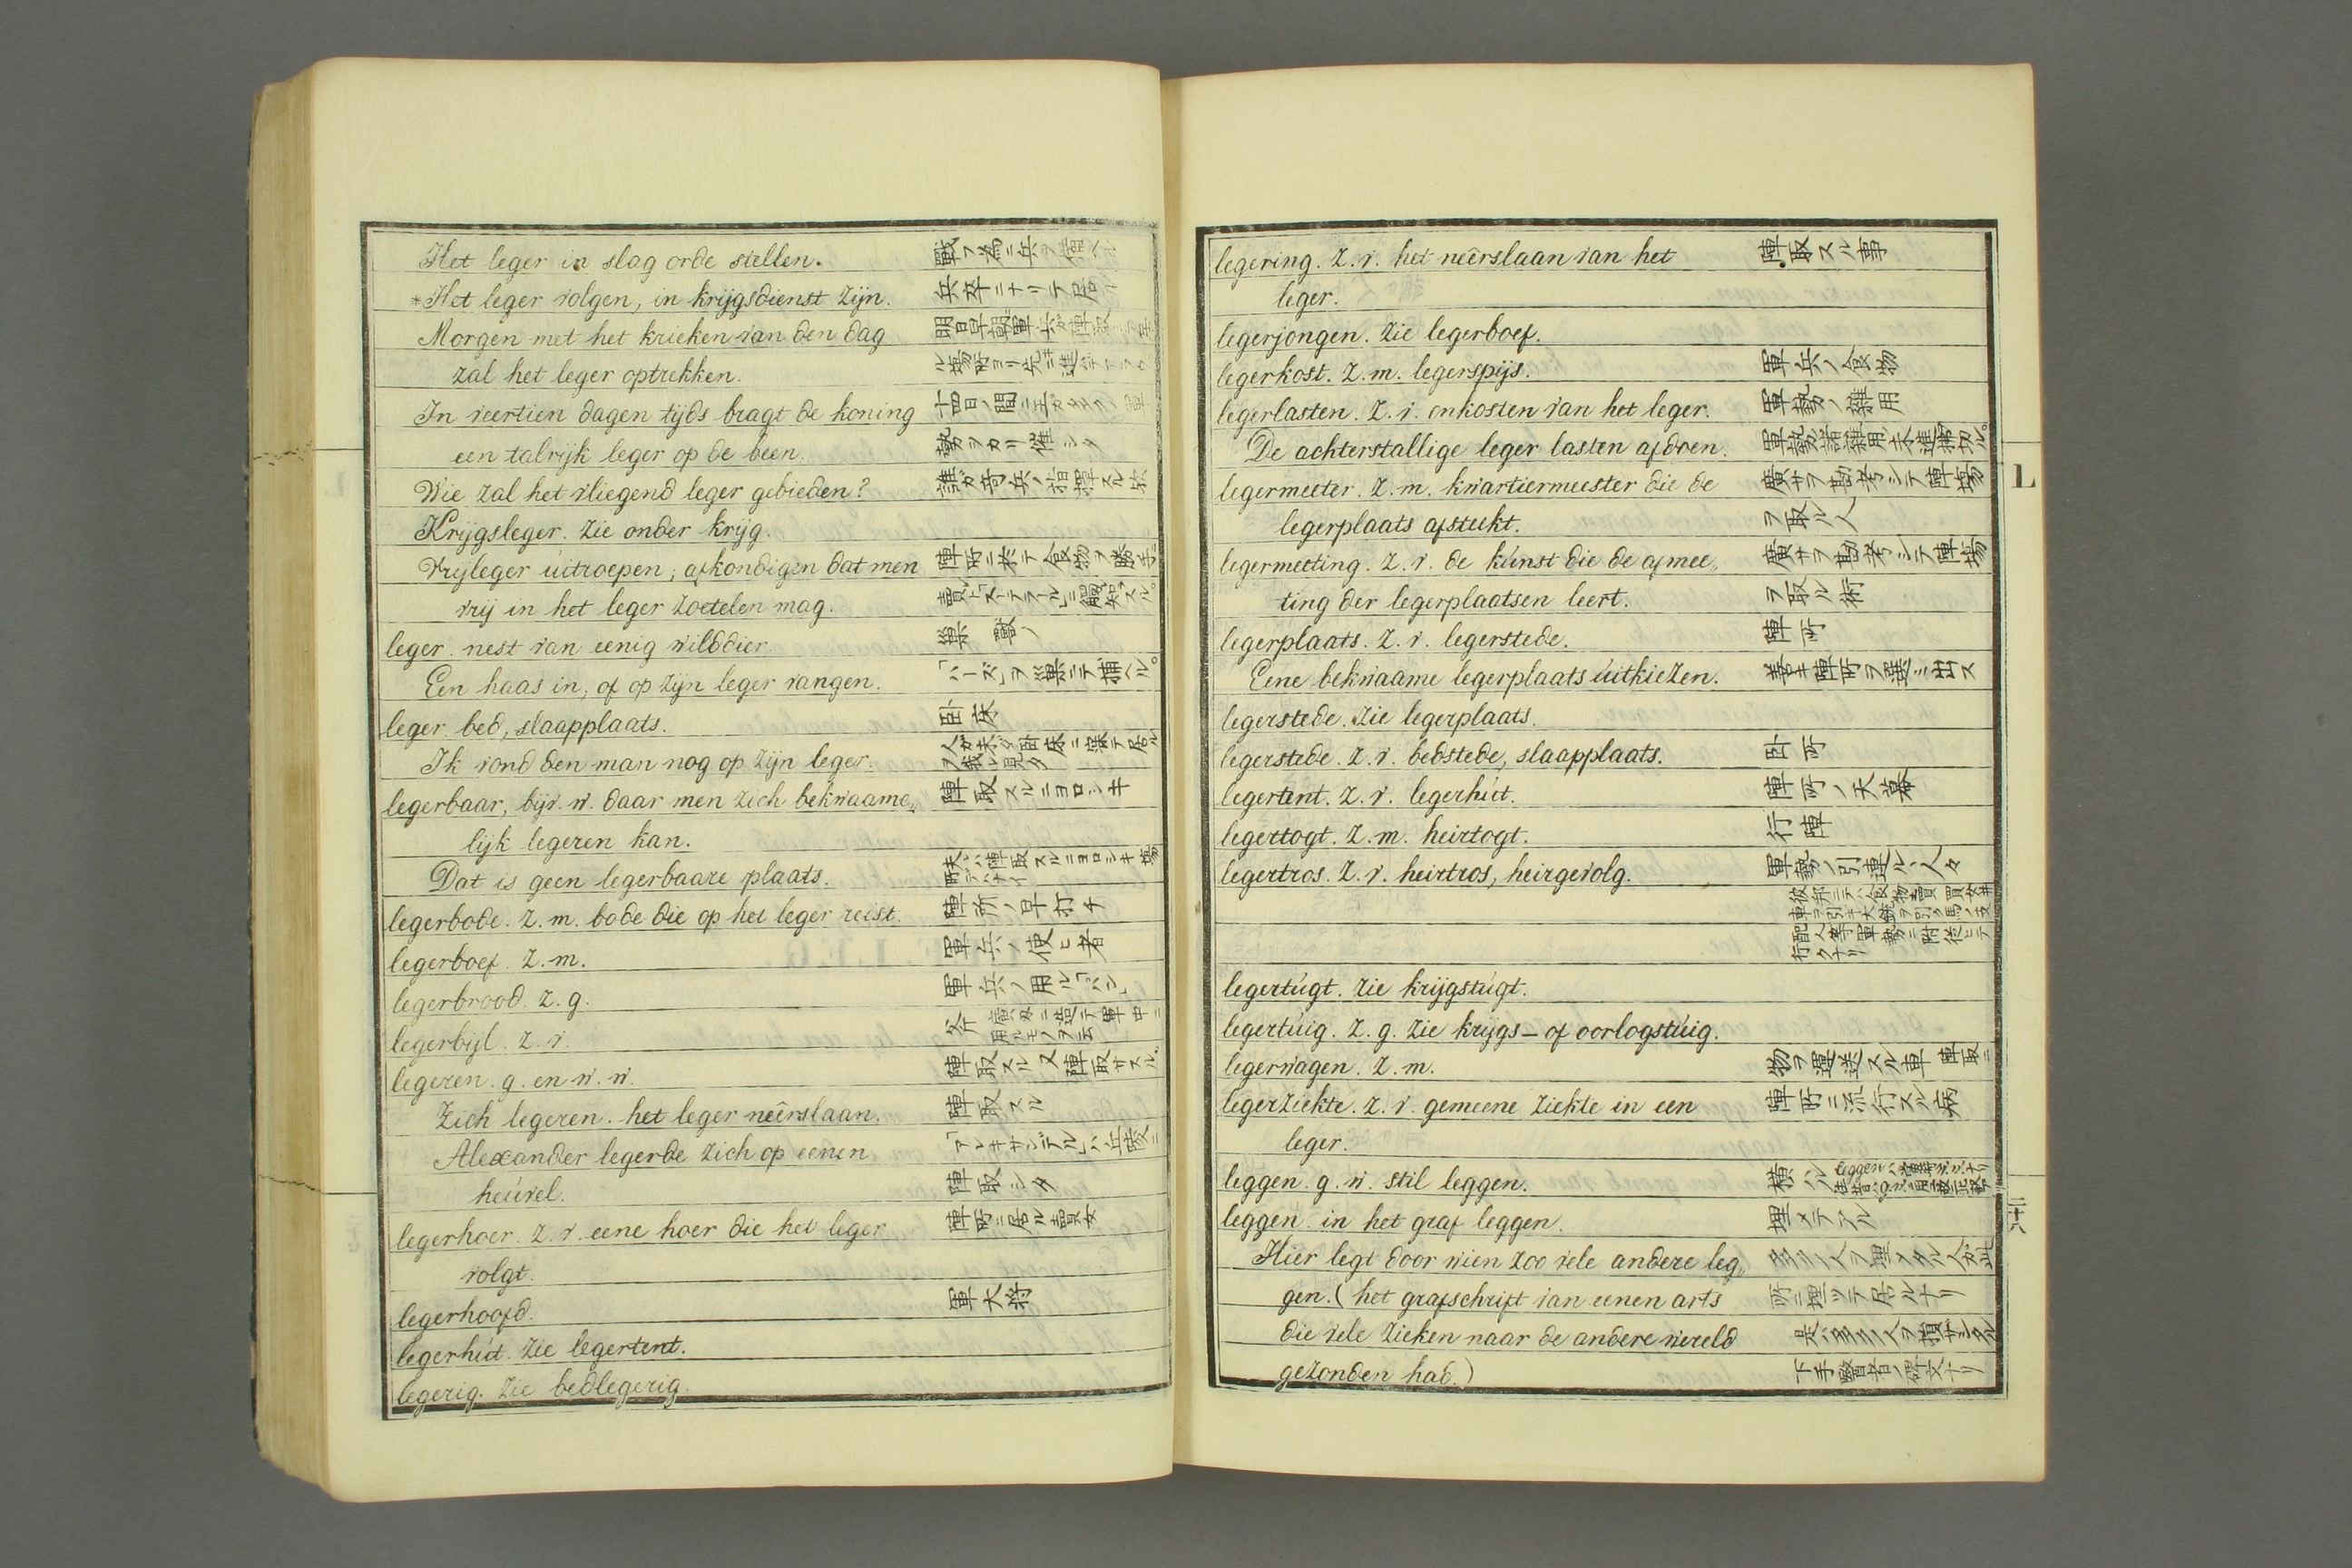 Het leger in slag orde stellen. 戰ヲ為ニ兵ヲ備ヘル
*Het leger volgen, in krijgsdienst zijn. 兵卒ニナリテ居ル
Morgen met het krieken van den dag 明日早朝軍兵ガ陣取テ居
zal het leger optrekken. ル場所ヨリ先ニ進ムデアラウ
In veertien dagen tijds bragt de koning 十四日ノ間ニ王ガ多クノ軍
een talrijk leger op de been. 勢ヲカリ催シタ
Wie zal het vliegend leger gebieden? 誰ガ奇兵ノ指揮スル歟
Krijgsleger. zie onder krijg.
Vrijleger uitroepen; afkondigen dat men 陣所ニ於テ食物ヲ勝手
vrij in het leger zoetelen mag.
leger. nest van eenig wilddier. 巣 獸ノ
Een haas in, of op zijn leger vangen. 「ハース」ヲ巣ニテ捕ヘル。
leger. bed, slaapplaats. 卧床
Ik vond den man nog op zijn leger. 人ガ未ダ卧床ニ寐テ居ル
ヲ我レ見タ
legerbaar, bijv. w. daar men zich bekwaame„ 陣取スルニヨロシキ
lijk legeren kan.
Dat is geen legerbaare plaats. 夫ハ陣取スルニヨロシキ場
所デハナイ
legerbode. z. m. bode die op het leger reist. 陣所ノ早打チ
legerboef. z. m. 軍兵ノ使ヒ者
legerbrood. z. g. 軍兵ノ用ル「パン」
legerbijl. z. v. 斧 廣刄ニ造テ軍中ニ
用ルモノヲ云
legeren. g. en w. w. 陣取スル 又陣取サスル。
Zich legeren. het leger neêrslaan. 陣取スル
Alexander legerde zich op eenen 「アレキサンデル」ハ丘陵ニ
heuvel. 陣取シタ
legerhoer. z. v. eene hoer die het leger 陣所ニ居ル賣女
volgt.
legerhoofd. 軍大将
legerhut. zie legertent.
legerig. zie bedlegerig.
legering. z. v. het neêrslaan van het 陣取スル事
leger.
legerjongen. zie legerboef.
legerkost. z. m. legerspijs. 軍兵ノ食物
legerlasten. z. v. onkosten van het leger. 軍勢ノ雜用
De achterstallige leger lasten afdoen. 軍勢諸雜用ノ未進拂切ル。
legermeeter. z. m. kwartiermeester die de 廣サヲ勘考シテ陣場
legerplaats afsteekt. ヲ取ル人
legermeeting. z. v. de kunst die de afmee„ 廣サヲ勘考シテ陣場
ting der legerplaatsen leert. ヲ取ル術
legerplaats. z. v. legerstede. 陣所
Eene bekwaame legerplaats uitkiezen. 善キ陣所ヲ選ミ出ス
legerstede. zie legerplaats.
legerstede. z. v. bedstede, slaapplaats. 卧所
legertent. z. v. legerhut. 陣所ノ天幕
legertogt. z. m. heirtogt. 行陣
legertros. z. v. heirtros, heirgevolg. 軍勢ノ引連ル人々
彼邦ニテハ食物賣買女并
車ヲ引キ大銃ヲ引ク馬ノ支
配人等軍勢ニ附従ヒテ
行クナリ
legertugt. zie krijgstugt.
legertuig. z. g. zie krijgs- of oorlogstuig.
legerwagen. z. m. 陣取ニ
物ヲ運送スル車
legerziekte. z. v. gemeene ziekte in een 陣所ニ流行スル病
leger.
leggen. g. w. stil leggen. 横ハル
leggen. in het graf leggen. 埋メテアル
Hier legt door wien zoo vele andere leg„ 多ミノ人ヲ埋メタル人ガ此
gen. (het grafschrift van eenen arts 所ニ埋ッテ居ルナリ
die vele zieken naar de andere wereld 是ハ多ミノ人ヲ損サシタル
gezonden had.) 下手醫者ノ碑文ナリ
L